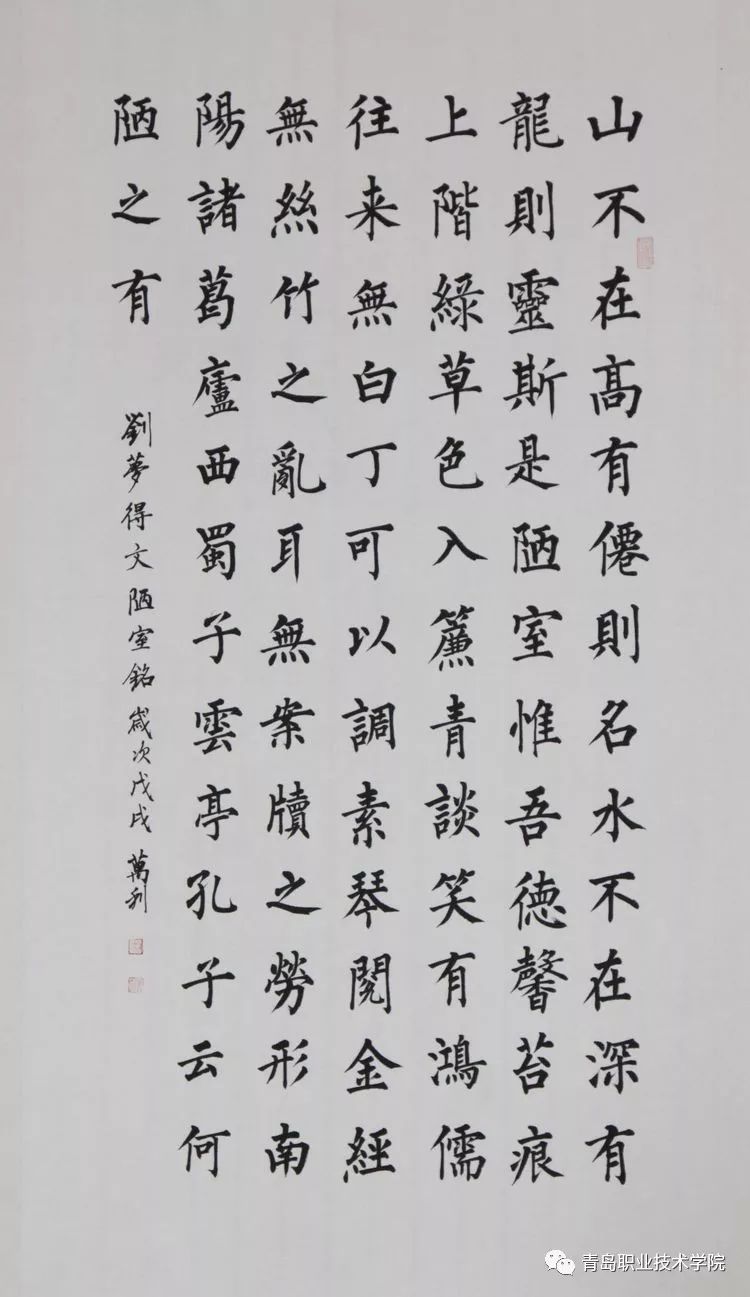 山不在高有僊則名水不在深有
龍則靈斯是陋室惟吾德馨苔痕
上階綠草色入簾青談笑有鴻儒
往来無白丁可以調素琴閱金經
無絲竹之亂耳無案牘之勞形南
陽諸葛廬西蜀子雲亭孔子云何
陋之有
劉夢得文陋室銘歲次戊戌萬利
青岛职业技术学院